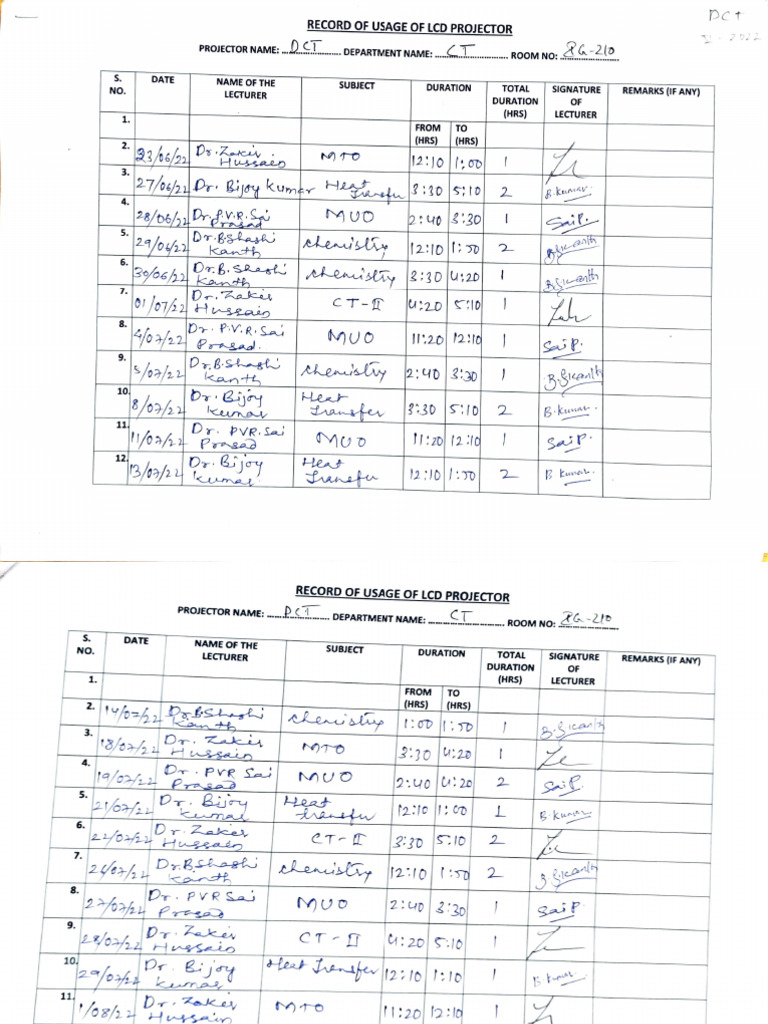 DCT
II - 2022
RECORD OF USAGE OF LCD PROJECTOR
PROJECTOR NAME: DCT DEPARTMENT NAME: CT ROOM NO: RG-210
S. NO. DATE NAME OF THE LECTURER SUBJECT DURATION TOTAL DURATION (HRS) SIGNATURE OF LECTURER REMARKS (IF ANY)
1. FROM (HRS) TO (HRS)
2. 23/06/22 Dr. Zaker Hussain MTO 12:10 1:00 1
3. 27/06/22 Dr. Bijoy kumar Heat Transfer 3:30 5:10 2 B. Kumar
4. 28/06/22 Dr. P.V.R. Sai Prasad MUO 2:40 3:30 1 Sai P.
5. 29/06/22 Dr. B Shashi Kanth chemistry 12:10 1:50 2 B. Sikanth
6. 30/06/22 Dr. B. Shashi Kanth chemistry 3:30 4:20 1 B. Sikanth
7. 01/07/22 Dr. Zaker Hussain CT-II 4:20 5:10 1
8. 4/07/22 Dr. P.V.R. Sai Prasad. MUO 11:20 12:10 1 Sai P.
9. 5/07/22 Dr. B. Shashi Kanth chemistry 2:40 3:30 1 B. Sikanth
10. 8/07/22 Dr. Bijoy kumar Heat Transfer 3:30 5:10 2 B. Kumar
11. 11/07/22 Dr. PVR. Sai Prasad MUO 11:20 12:10 1 Sai P.
12. 13/07/22 Dr. Bijoy kumar Heat Transfer 12:10 1:50 2 B Kumar
RECORD OF USAGE OF LCD PROJECTOR
PROJECTOR NAME: DCT DEPARTMENT NAME: CT ROOM NO: RG-210
S. NO. DATE NAME OF THE LECTURER SUBJECT DURATION TOTAL DURATION (HRS) SIGNATURE OF LECTURER REMARKS (IF ANY)
1. FROM (HRS) TO (HRS)
2. 14/07/22 Dr. B Shashi Kanth chemistry 1:00 1:50 1 B. Sikanth
3. 18/07/22 Dr. Zaker Hussain MTO 3:30 4:20 1
4. 19/07/22 Dr. PVR Sai Prasad MUO 2:40 4:20 2 Sai P.
5. 21/07/22 Dr. Bijoy kumar Heat transfer 12:10 1:00 1 B. Kumar
6. 22/07/22 Dr. Zaker Hussain CT-II 3:30 5:10 2
7. 26/07/22 Dr. B Shashi Kanth chemistry 12:10 1:50 2 B Sikanth
8. 27/07/22 Dr. PVR Sai Prasad MUO 2:40 3:30 1 Sai P.
9. 28/07/22 Dr. Zaker Hussain CT-II 4:20 5:10 1
10. 29/07/22 Dr. Bijoy kumar Heat Transfer 12:10 1:10 1 B Kumar
11. 1/08/22 Dr. Zaker Hussain MTO 11:20 12:10 1